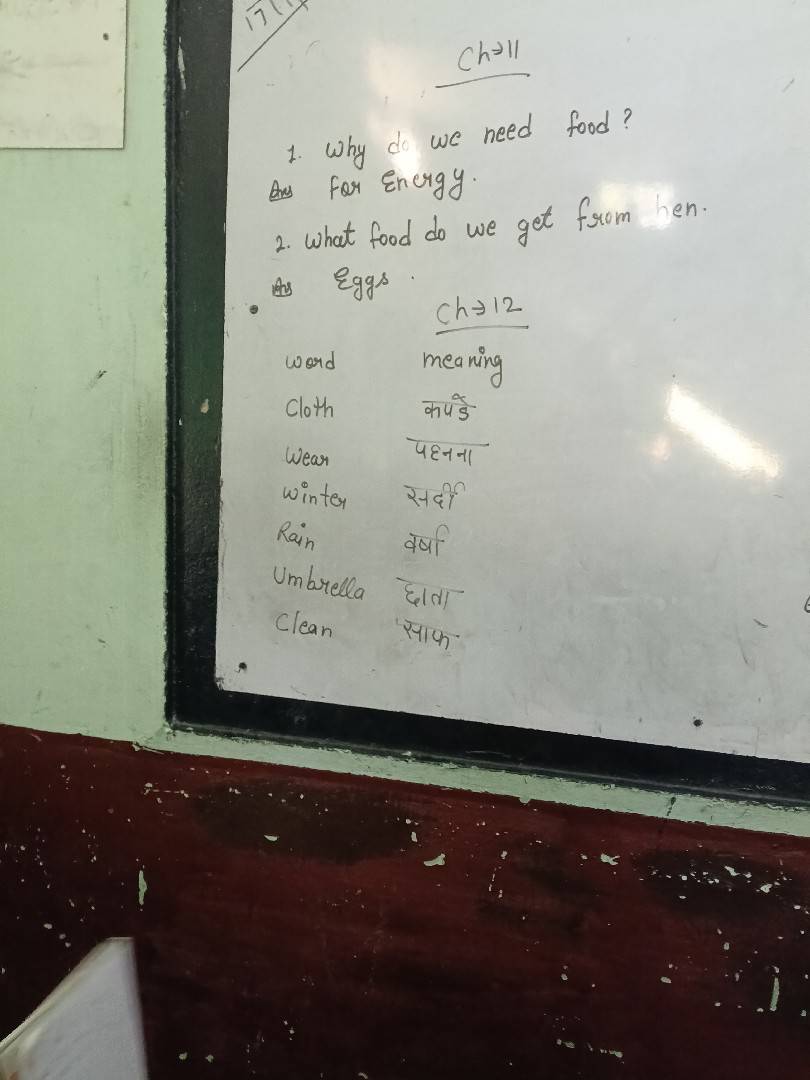 Ch→11
1. Why do we need food?
Ans For Energy.
2. What food do we get from hen.
Ans Eggs.
Ch→12
word meaning
Cloth कपडे
Wear पहनना
Winter सर्दी
Rain वर्षा
Umbrella छाता
Clean साफ